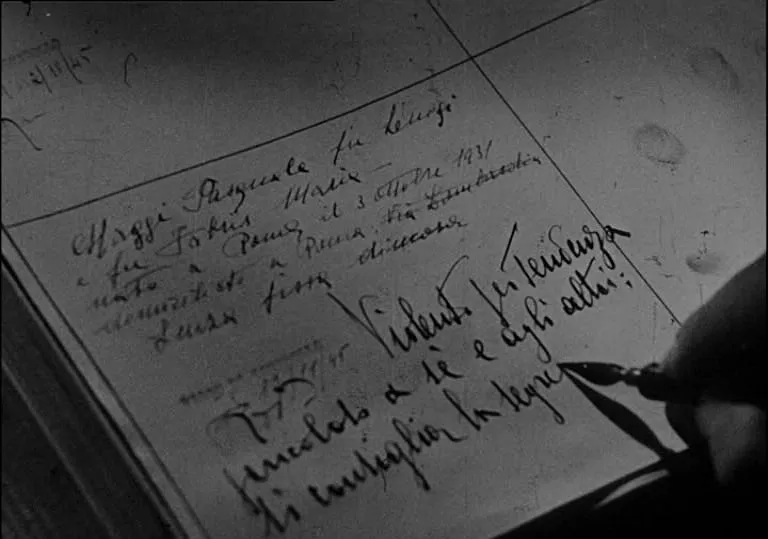 2/11/45
Maggi Pasquale fu
e fu Maria
nato a Roma il 3 ottobre 1931
domiciliato a Roma, Via Lombardia
Senza fissa dimora
Violento per tendenza
11/45
pericoloso a sè e agli altri:
Si consiglia la segre